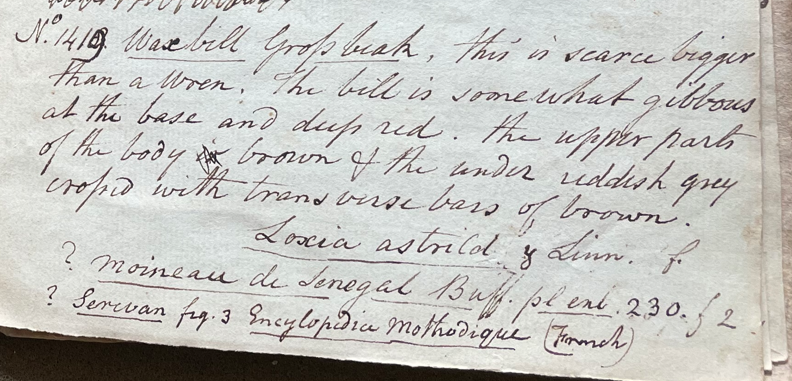 No. 1419 Waxbill Grossbeak, this is scarce bigger
than a Wren. The bill is somewhat gibbous
at the base and deep red. the upper parts
of the body brown & the under reddish grey
crossed with transverse bars of brown.
Loxia astrild γ Linn. f.
? moineau de Senegal Buff. pl enl. 230. f 2
? Serevan fig. 3 Encylopedia Mothodique (French)